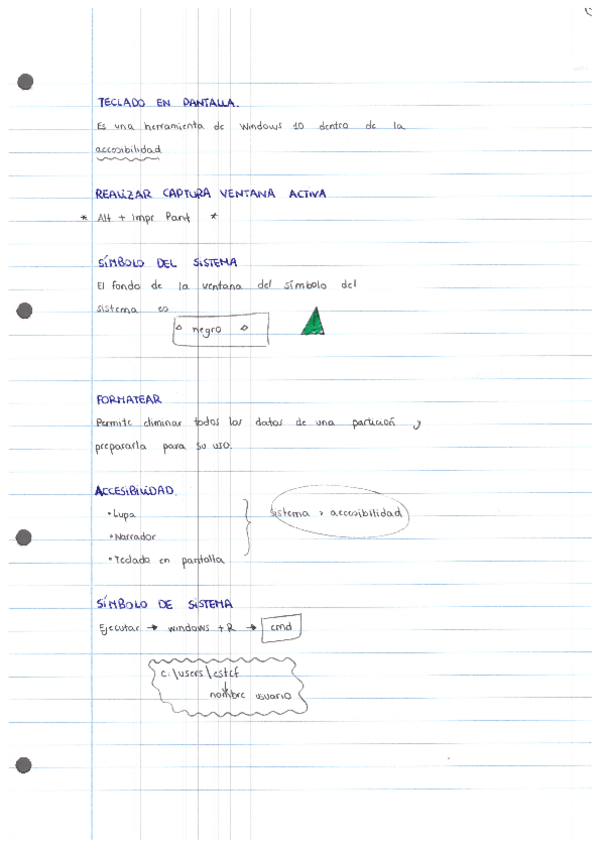 TECLADO EN PANTALLA.
Es una herramienta de Windows 10 dentro de la
accesibilidad
REALIZAR CAPTURA VENTANA ACTIVA
* Alt + Impr Pant *
SÍMBOLO DEL SISTEMA
El fondo de la ventana del símbolo del
sistema es
negro
FORMATEAR
Permite eliminar todos los datos de una partición y
prepararla para su uso.
ACCESIBILIDAD.
• Lupa
• Narrador
• Teclado en pantalla
Sistema > accesibilidad
SÍMBOLO DE SISTEMA
Ejecutar → windows + R → cmd
c:\users\estcf
nombre usuario